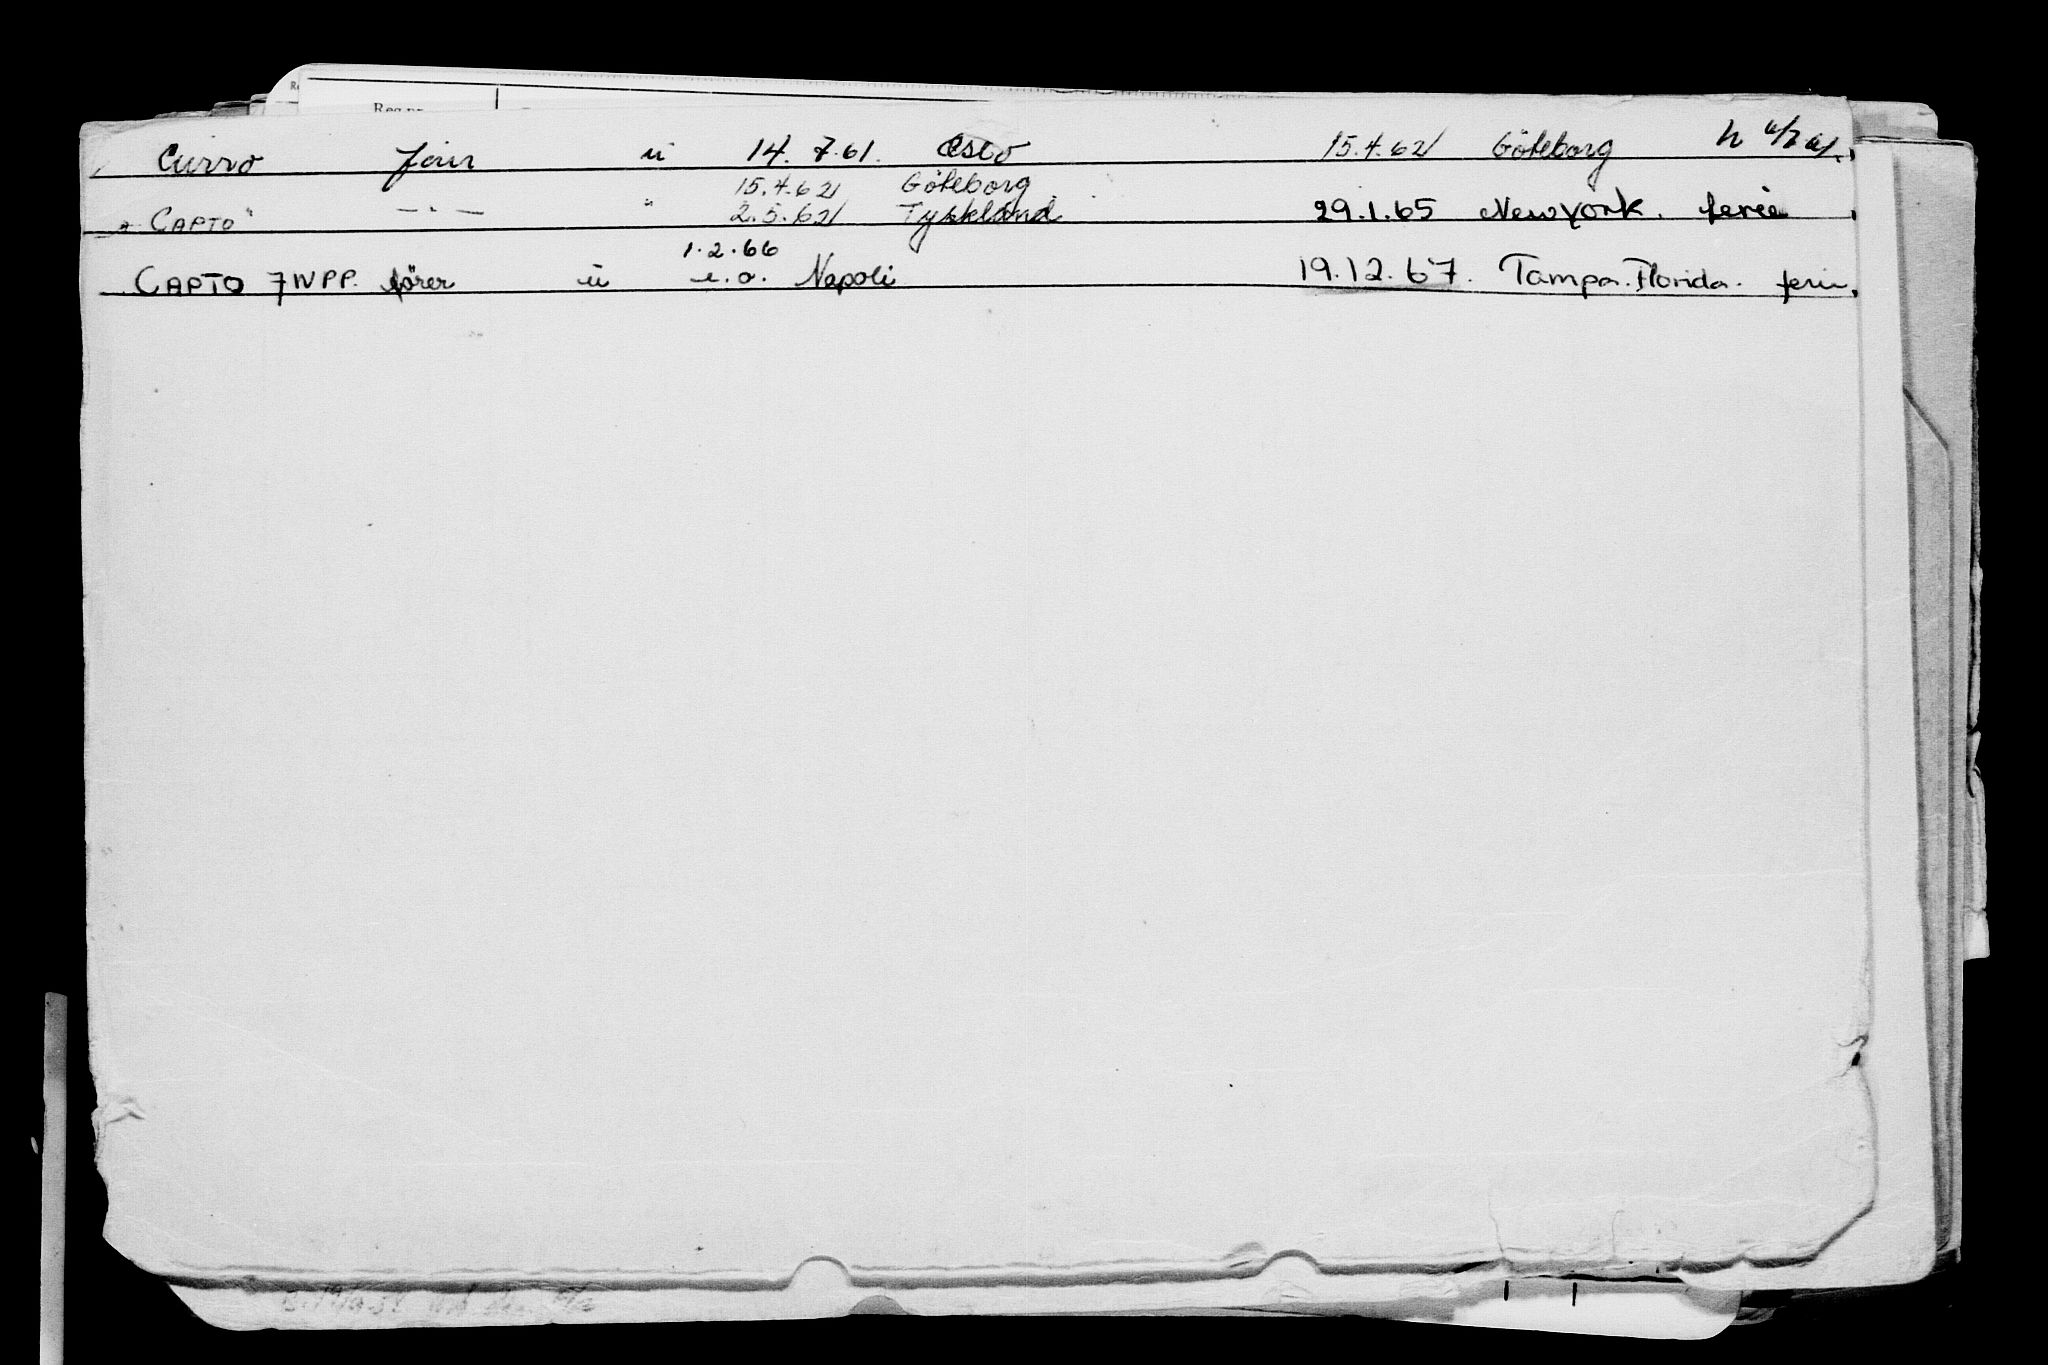 Reg.nr.
Curro förer u 14.7.61. Oslo 15.4.62 Göteborg
15.4.62 Göteborg
"Capto" — " — " 2.5.62 Tyskland 29.1.65 New York. ferie
1.2.66
CAPTO 7 IVPP. förer u Napoli 19.12.67. Tampa. Florida. ferie